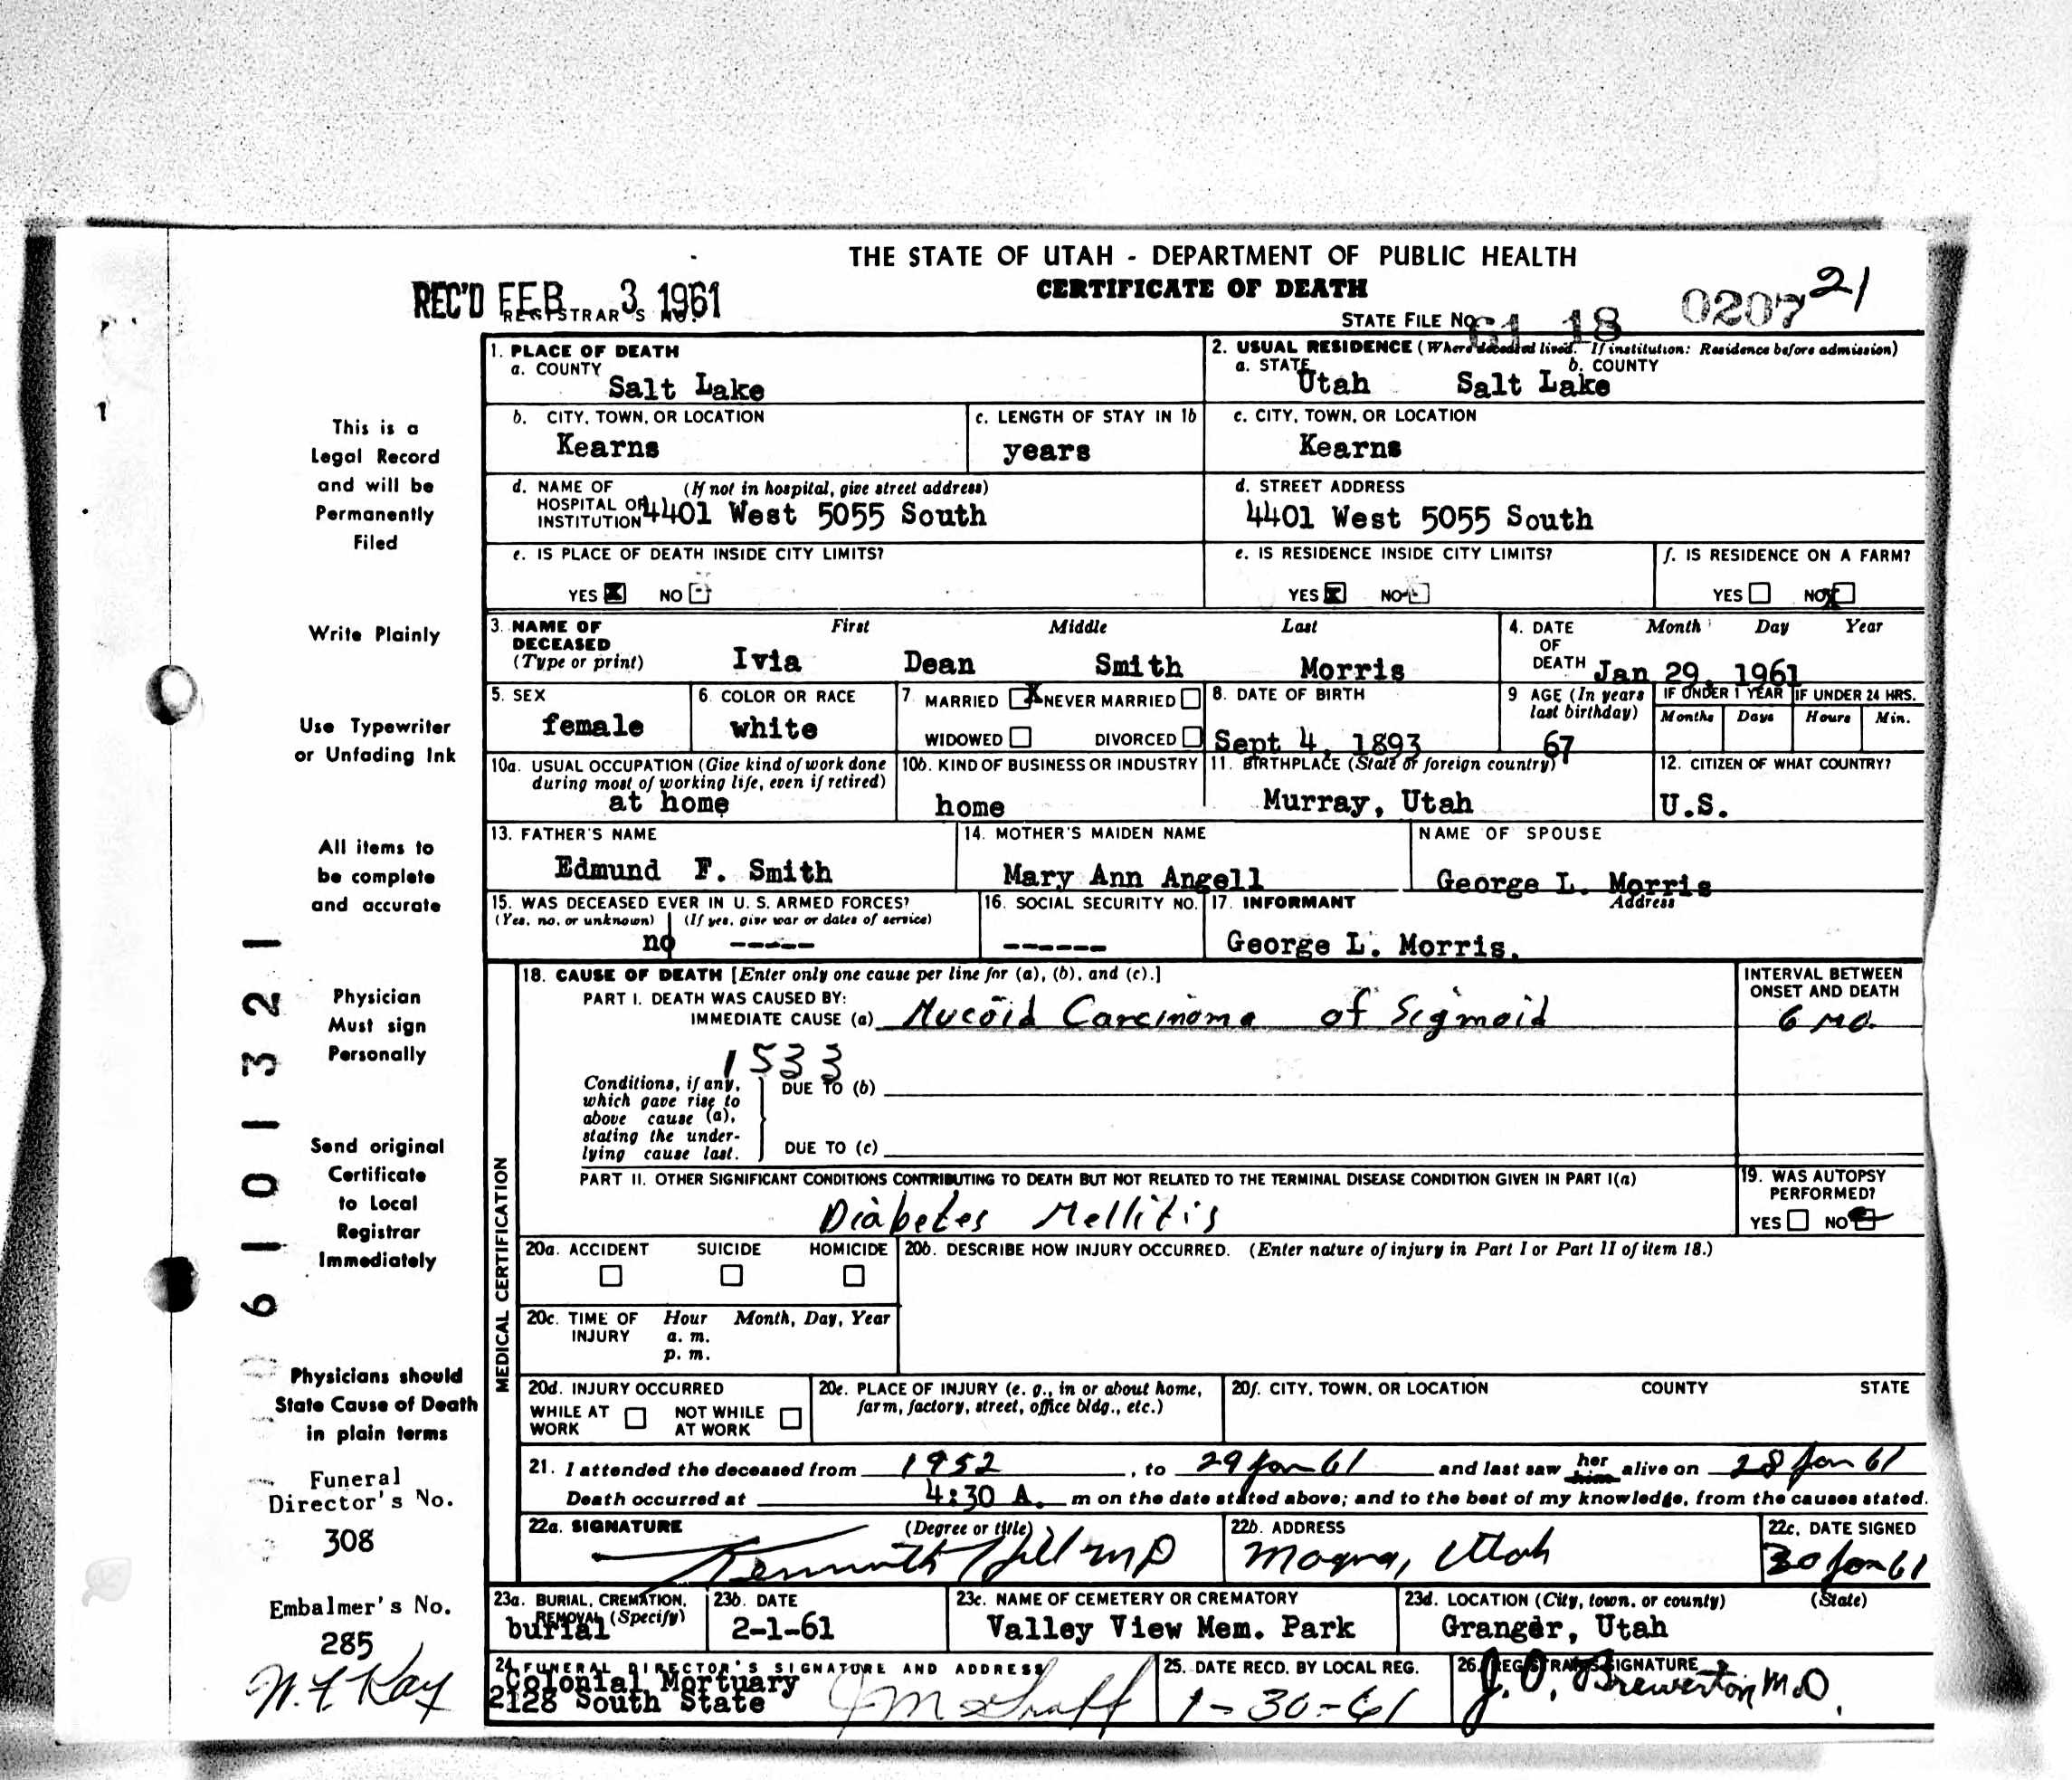 THE STATE OF UTAH - DEPARTMENT OF PUBLIC HEALTH
CERTIFICATE OF DEATH
21
REC'D FEB 3 1961
REGISTRAR'S NO.
STATE FILE No. 61 18 0207
1. PLACE OF DEATH
a. COUNTY
Salt Lake
2. USUAL RESIDENCE (Where deceased lived. If institution: Residence before admission)
a. STATE b. COUNTY
Utah Salt Lake
b. CITY, TOWN, OR LOCATION
Kearns
c. LENGTH OF STAY IN 1b
years
c. CITY, TOWN, OR LOCATION
Kearns
d. NAME OF (If not in hospital, give street address)
HOSPITAL OR
INSTITUTION 4401 West 5055 South
d. STREET ADDRESS
4401 West 5055 South
e. IS PLACE OF DEATH INSIDE CITY LIMITS?
YES X NO
e. IS RESIDENCE INSIDE CITY LIMITS?
YES X NO
f. IS RESIDENCE ON A FARM?
YES NO X
3. NAME OF First Middle Last
DECEASED
(Type or print) Ivia Dean Smith Morris
4. DATE Month Day Year
OF
DEATH Jan 29, 1961
5. SEX
female
6. COLOR OR RACE
white
7. MARRIED X NEVER MARRIED
WIDOWED DIVORCED
8. DATE OF BIRTH
Sept 4, 1893
9 AGE (In years
last birthday)
67
IF UNDER 1 YEAR IF UNDER 24 HRS.
Months Days Hours Min.
10a. USUAL OCCUPATION (Give kind of work done
during most of working life, even if retired)
at home
10b. KIND OF BUSINESS OR INDUSTRY
home
11. BIRTHPLACE (State or foreign country)
Murray, Utah
12. CITIZEN OF WHAT COUNTRY?
U.S.
13. FATHER'S NAME
Edmund F. Smith
14. MOTHER'S MAIDEN NAME
Mary Ann Angell
NAME OF SPOUSE
George L. Morris
15. WAS DECEASED EVER IN U. S. ARMED FORCES?
(Yes, no, or unknown) (If yes, give war or dates of service)
no -----
16. SOCIAL SECURITY NO.
------
17. INFORMANT Address
George L. Morris.
MEDICAL CERTIFICATION
18. CAUSE OF DEATH [Enter only one cause per line for (a), (b), and (c).]
PART I. DEATH WAS CAUSED BY:
IMMEDIATE CAUSE (a) Mucoid Carcinoma of Sigmoid
INTERVAL BETWEEN
ONSET AND DEATH
6 MO.
1533
Conditions, if any,
which gave rise to
above cause (a),
stating the under-
lying cause last.
DUE TO (b)
DUE TO (c)
PART II. OTHER SIGNIFICANT CONDITIONS CONTRIBUTING TO DEATH BUT NOT RELATED TO THE TERMINAL DISEASE CONDITION GIVEN IN PART I(a)
Diabetes Mellitis
19. WAS AUTOPSY
PERFORMED?
YES NO
20a. ACCIDENT SUICIDE HOMICIDE
20b. DESCRIBE HOW INJURY OCCURRED. (Enter nature of injury in Part I or Part II of item 18.)
20c. TIME OF Hour Month, Day, Year
INJURY a. m.
p. m.
20d. INJURY OCCURRED
WHILE AT NOT WHILE
WORK AT WORK
20e. PLACE OF INJURY (e. g., in or about home,
farm, factory, street, office bldg., etc.)
20f. CITY, TOWN, OR LOCATION COUNTY STATE
21. I attended the deceased from 1952, to 29 Jan 61 and last saw her him alive on 28 Jan 61
Death occurred at 4:30 A. m on the date stated above; and to the best of my knowledge, from the causes stated.
22a. SIGNATURE (Degree or title)
Kenneth Hill MD
22b. ADDRESS
Magna, Utah
22c. DATE SIGNED
30 Jan 61
23a. BURIAL, CREMATION,
REMOVAL (Specify)
burial
23b. DATE
2-1-61
23c. NAME OF CEMETERY OR CREMATORY
Valley View Mem. Park
23d. LOCATION (City, town, or county) (State)
Granger, Utah
24. FUNERAL DIRECTOR'S SIGNATURE AND ADDRESS
Colonial Mortuary
2128 South State
25. DATE RECD. BY LOCAL REG.
1-30-61
26. REGISTRAR'S SIGNATURE
J. O. Brewerton, M.D.
1
This is a
Legal Record
and will be
Permanently
Filed
Write Plainly
Use Typewriter
or Unfading Ink
All items to
be complete
and accurate
Physician
Must sign
Personally
Send original
Certificate
to Local
Registrar
Immediately
Physicians should
State Cause of Death
in plain terms
Funeral
Director's No.
308
Embalmer's No.
285
W. F. Kay
6101321